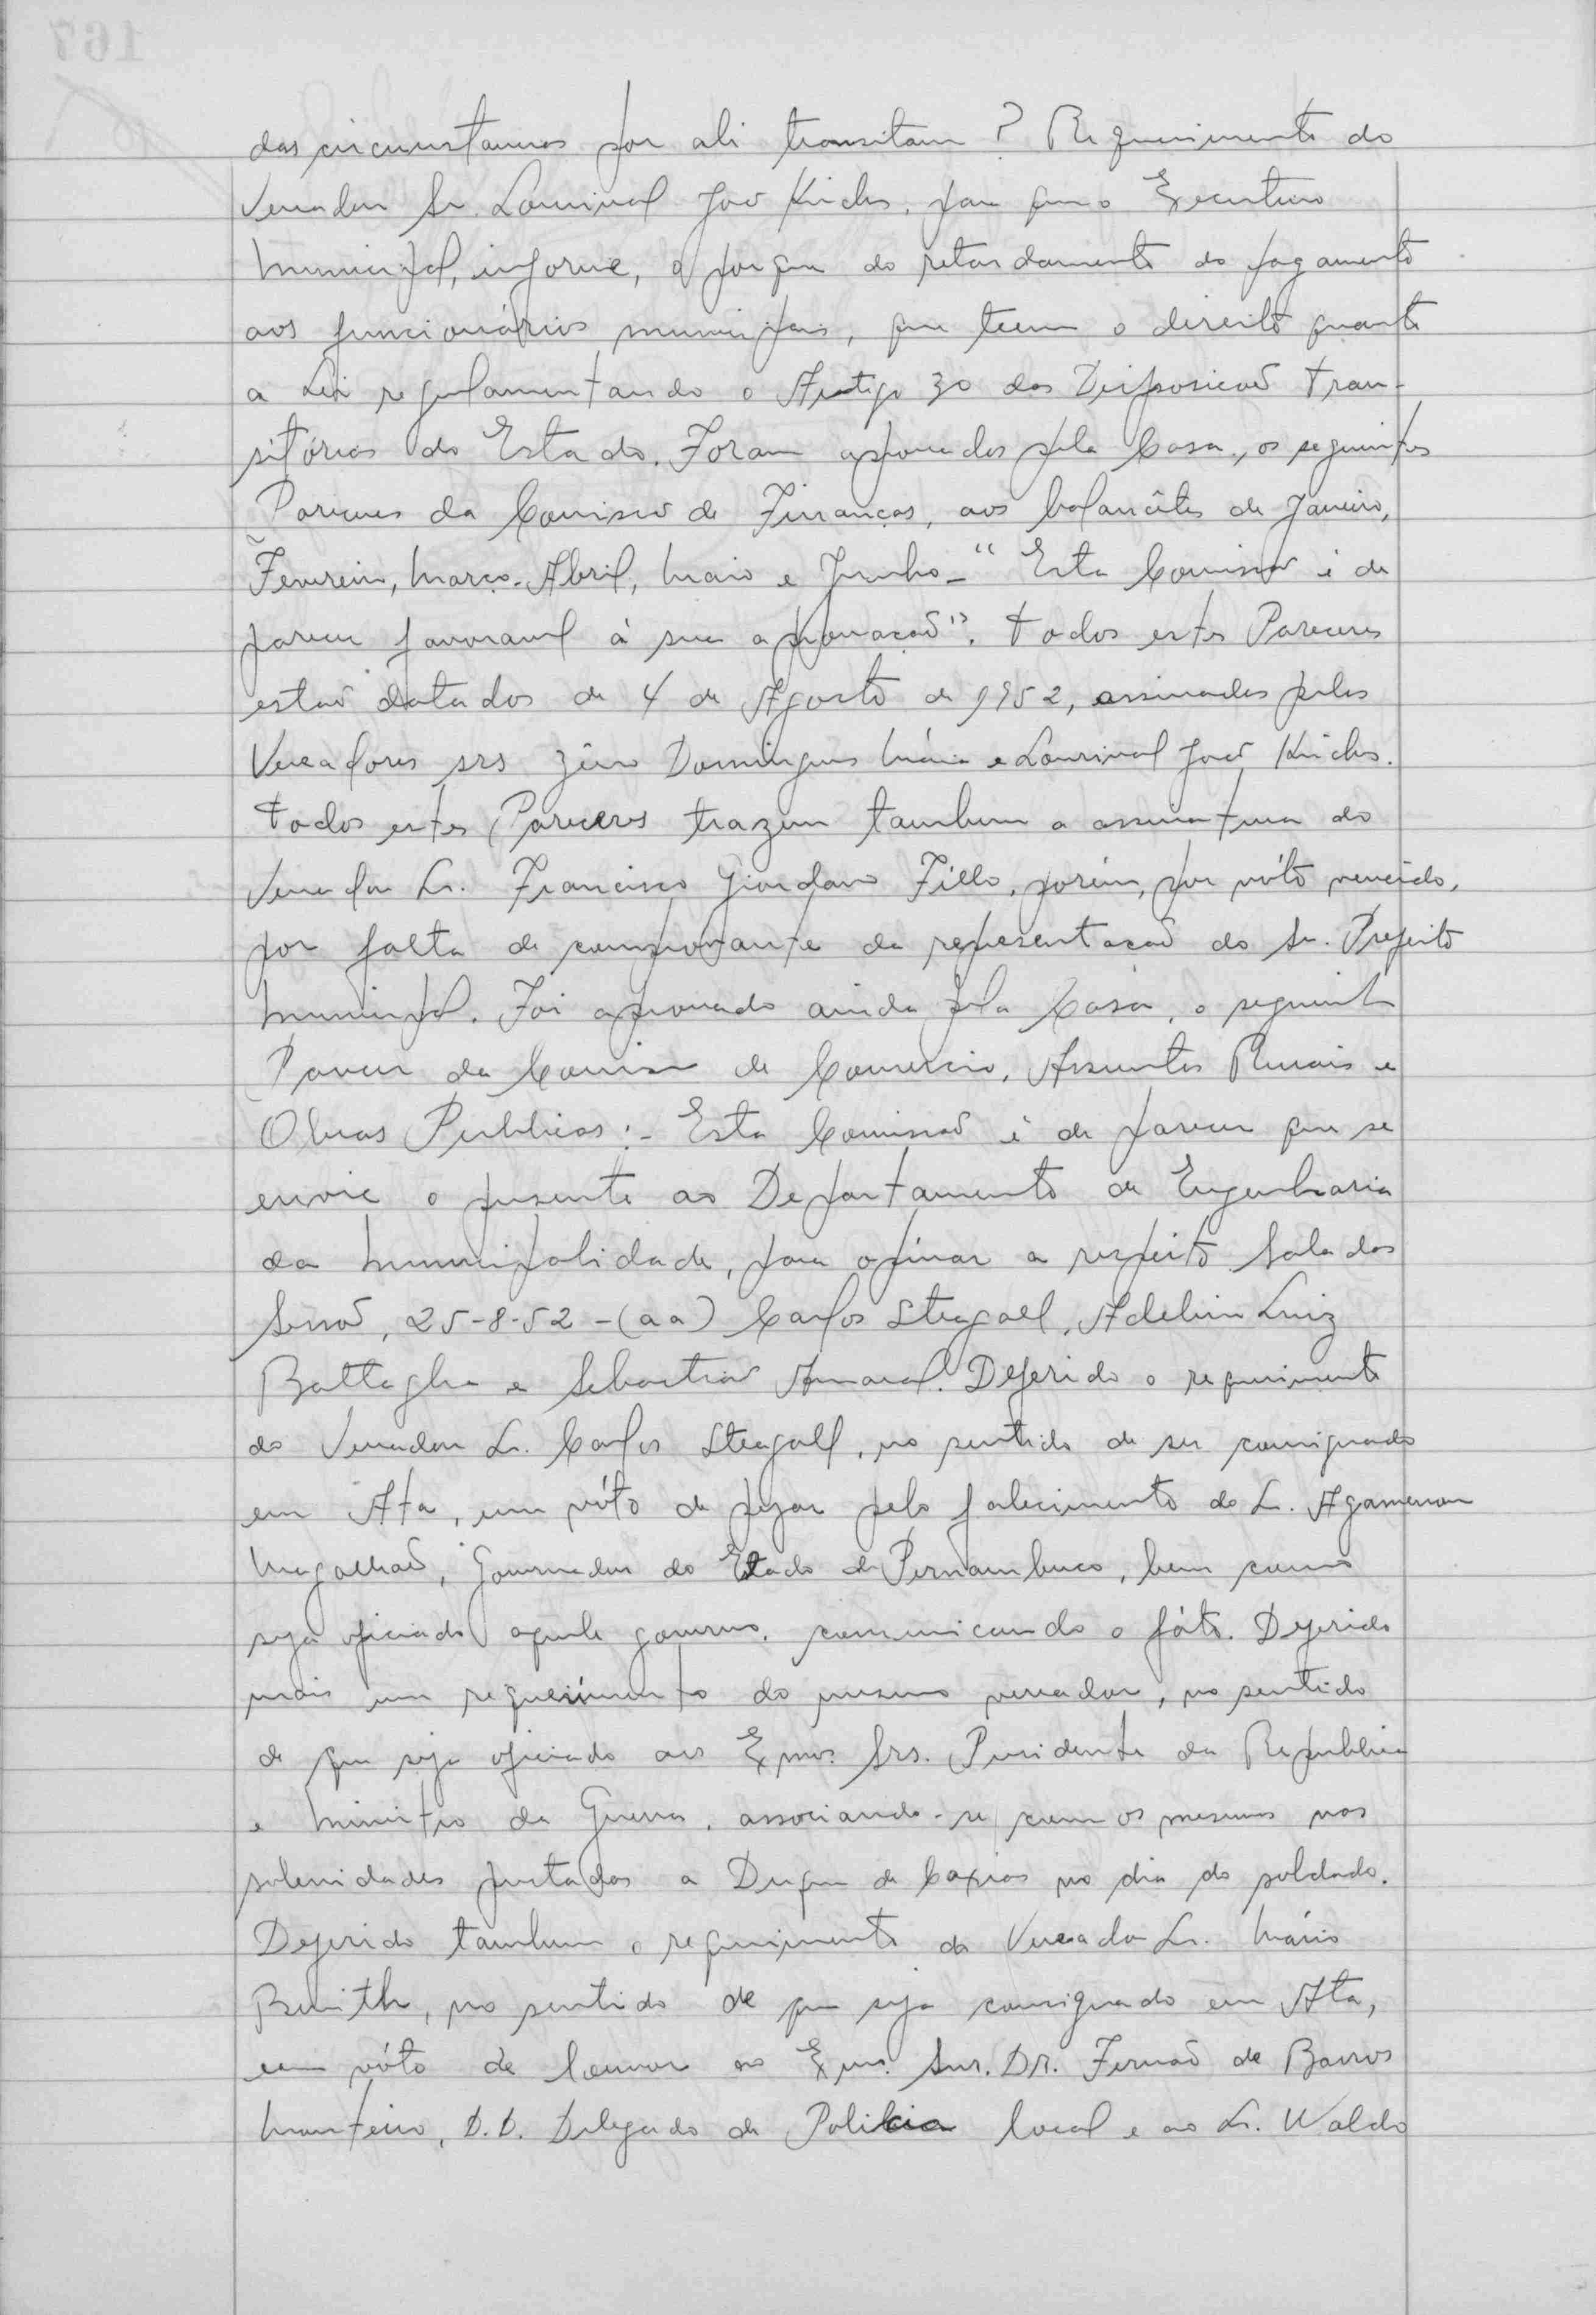 das circunstancias por ali transitam? Requerimento do
Vereador Sr. Lourival José Kirches, para que o Executivo
Municipal, informe, o porque do retardamento do pagamento
aos funcionários municipais, que teem o direito quanto
a Lei regulamentando o Artigo 30 das Disposicoẽs Tran-
sitórias do Estado. Foram aprovados pela Casa, os seguintes
Pareceres da Comissão de Finanças, aos balancêtes de Janeiro,
Fevereiro, Março, Abril, Maio e Junho - "Esta Comissão é de
parecer favoravel á sua aprovação". Todos estes Pareceres
estão datados de 4 de Agosto de 1952, assinados pelos
Vereadores srs Domingues e Lourival José Kirches.
Todos estes Pareceres trazem tambem a assinatura do
Vereador Sr. Francisco Giordano Filho, porém, por vóto vencido,
por falta de comprovante da representação do Sr. Prefeito
Municipal. Foi aprovado ainda pela Casa, o seguinte
Parecer da Comissão de Comercio, Assuntos Rurais e
Obras Publicas:- Esta Comissão é de parecer que se
envie o presente ao Departamento de Engenharia
da Municipalidade, para opinar a respeito Sala das
Sessoẽs, 25-8-52 - (aa) Carlos Stegall, Adelino Luiz
Battaglia e Sebastião Amaral. Deferido o requerimento
do Vereador Sr. Carlos Stegall, no sentido de ser consignado
em Ata, um vóto de pezar pelo falecimento do Sr. Agamenon
Magalhaẽs, Governador do Estado de Pernambuco, bem como
seja oficiado aquele governo, comunicando o fáto. Deferido
mais um requerimento do mesmo vereador, no sentido
de que seja oficiado aos Exmos. Srs. Presidente da Republica
e Ministro da Guerra, associando-se com os mesmos nas
solenidades prestadas a Duque de Caxias no dia do soldado.
Deferido tambem o requerimento do Vereador Sr. Mário
no sentido de que seja consignado em Ata,
um vóto de louvor ao Exmo. Snr. DR. Fernão de Barros
Monteiro, D.D. Delegado de Policia local e ao Sr. Waldo